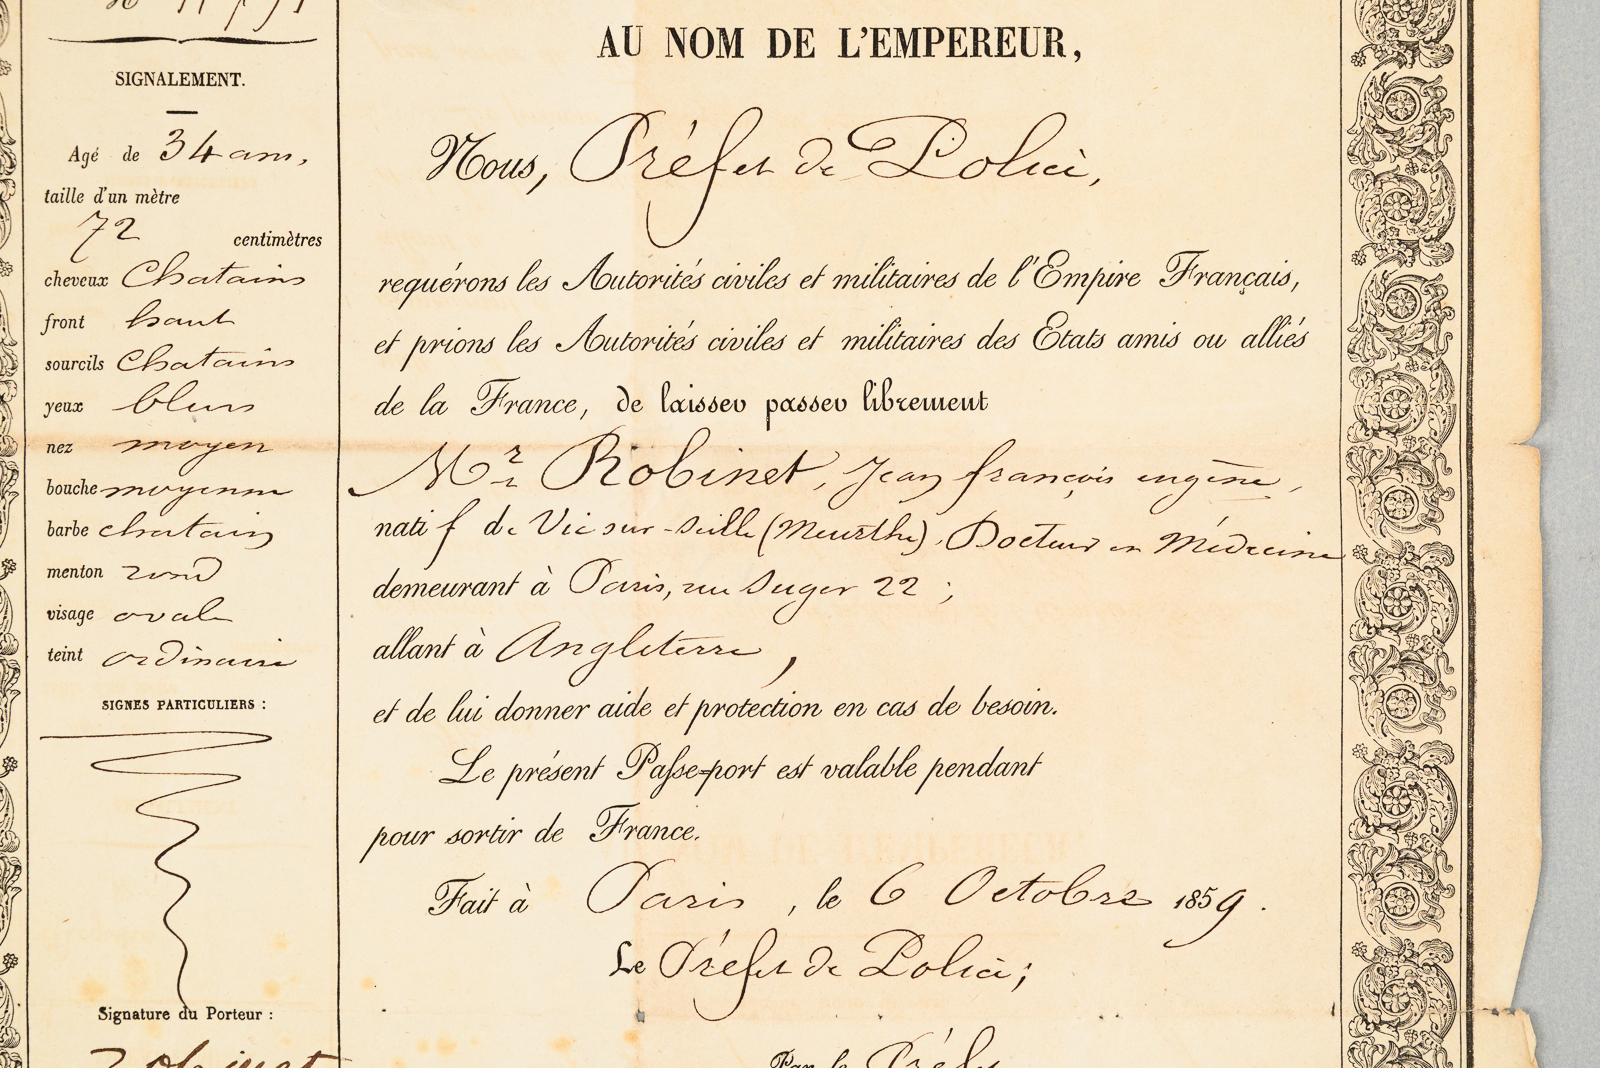 SIGNALEMENT.
Agé de 34 ans,
taille d'un mètre
72
centimètres
cheveux Chatains
front haut
sourcils Chatains
yeux bleus
nez moyen
bouche moyenne
barbe chatain
menton rond
visage ovale
teint ordinaire
SIGNES PARTICULIERS :
Signature du Porteur :
Robinet
AU NOM DE L'EMPEREUR,
Nous, Préfet de Police,
requérons les Autorités civiles et militaires de l'Empire Français,
et prions les Autorités civiles et militaires des Etats amis ou alliés
de la France, de laisser passer librement
Mr Robinet, Jean françois eugène,
natif de Vic sur-Seille (Meurthe), Docteur en Médecine
demeurant à Paris, rue Suger 22 ;
allant à Angleterre,
et de lui donner aide et protection en cas de besoin.
Le présent Passe-port est valable pendant
pour sortir de France.
Fait à Paris, le 6 Octobre 1859.
Le Préfet de Police;
Par le Préfet